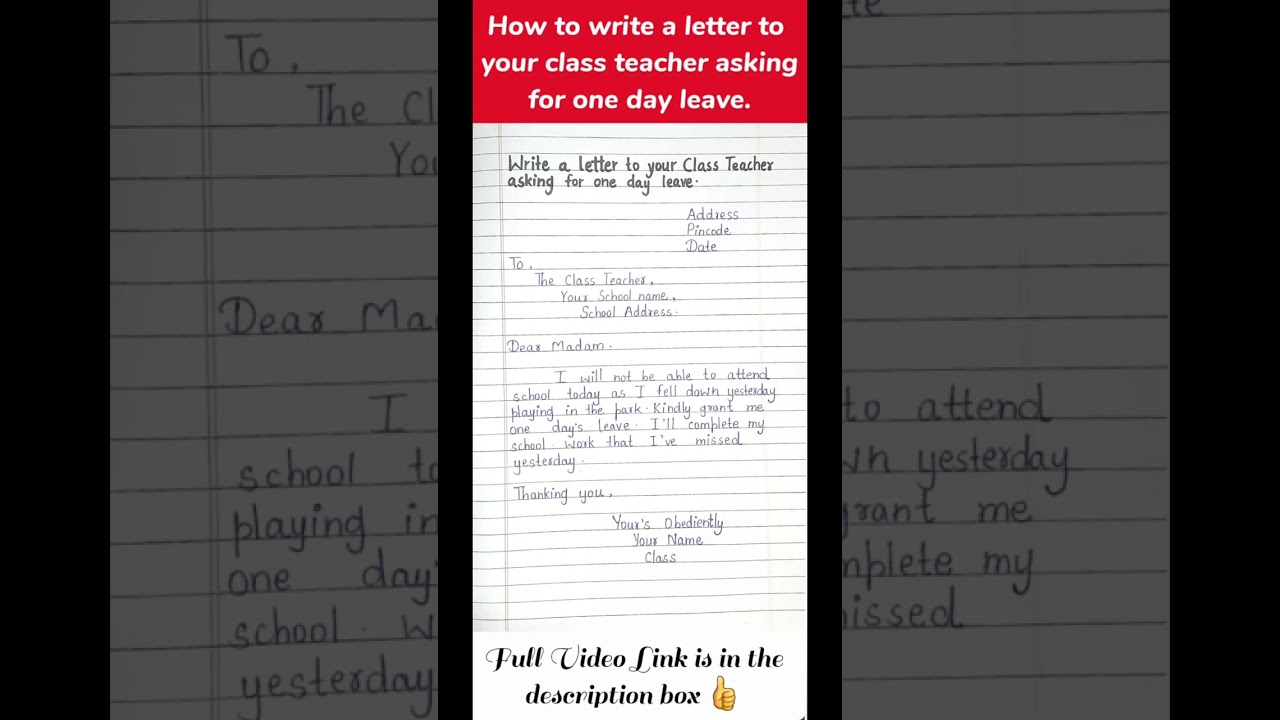 How to write a letter to
your class teacher asking
for one day leave.
Write a letter to your Class Teacher
asking for one day leave.
Address
Pincode
Date
To,
The Class Teacher,
Your School name,
School Address.
Dear Madam.
I will not be able to attend
school today as I fell down yesterday
playing in the park. Kindly grant me
one day's leave. I'll complete my
school. work that I've missed
yesterday.
Thanking you,
Your's Obediently
Your Name
Class
Full Video Link is in the
description box
To,
The Cl
You
Dear Ma
I
school to
playing in
one day'
school. W
yesterday
to attend
wn yesterday
grant me
mplete my
issed